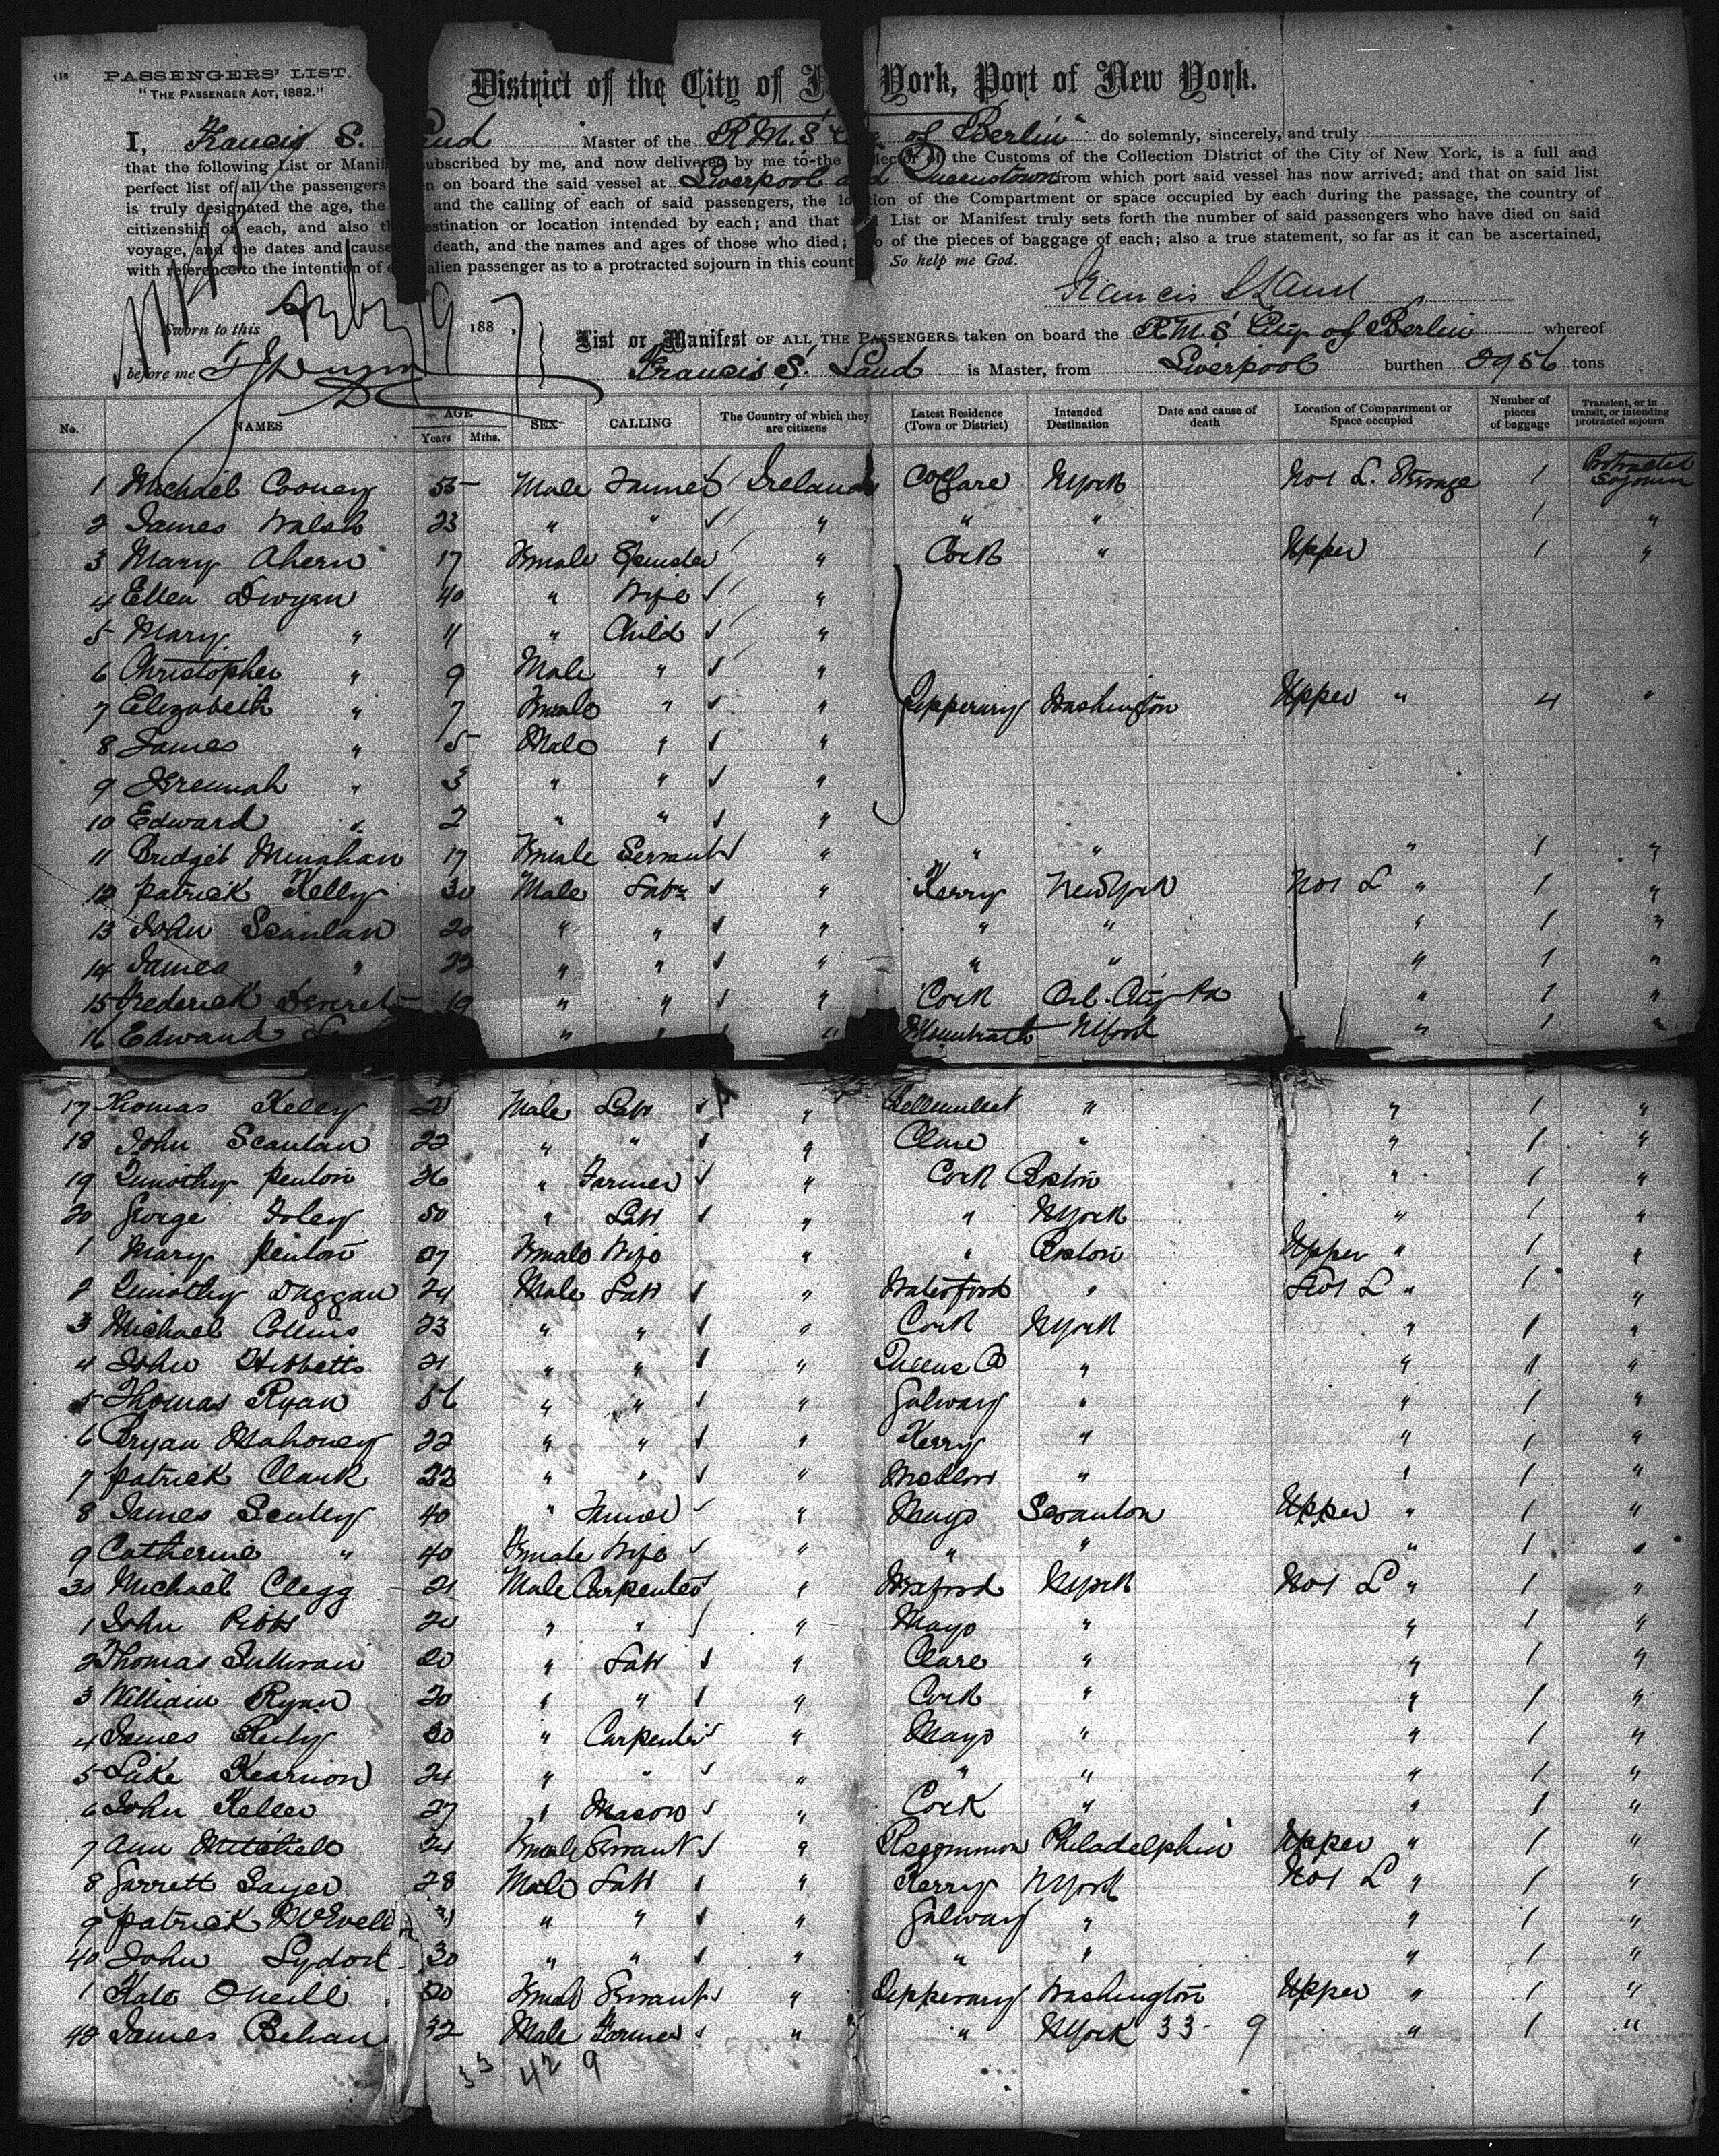 PASSENGERS' LIST.
"THE PASSENGER ACT, 1882."
District of the City of N York, Port of New York.
I, Francis S. Land Master of the R.M.S. City of Berlin do solemnly, sincerely, and truly
that the following List or Manif subscribed by me, and now delivered by me to the Collector of the Customs of the Collection District of the City of New York, is a full and
perfect list of all the passengers on board the said vessel at Liverpool and Queenstown from which port said vessel has now arrived; and that on said list
is truly designated the age, the and the calling of each of said passengers, the location of the Compartment or space occupied by each during the passage, the country of
citizenship of each, and also the destination or location intended by each; and that List or Manifest truly sets forth the number of said passengers who have died on said
voyage, and the dates and cause death, and the names and ages of those who died; of the pieces of baggage of each; also a true statement, so far as it can be ascertained,
with reference to the intention of alien passenger as to a protracted sojourn in this count So help me God.
Francis S Land
Sworn to this 19 1887
List or Manifest OF ALL THE PASSENGERS taken on board the R.M.S. City of Berlin whereof
before me Francis S. Land is Master, from Liverpool burthen 2956 tons
No. NAMES AGE Years Mths. SEX CALLING The Country of which they are citizens Latest Residence (Town or District) Intended Destination Date and cause of death Location of Compartment or Space occupied Number of pieces of baggage Transient, or in transit, or intending protracted sojourn
1 Michael Cooney 55 Male Farmer Ireland Co Clare NYork No 1 L. Steerage 1 Protracted Sojourn
2 James Walsh 23 " " " " " 1 "
3 Mary Ahern 17 Female Spinster " Cork " Upper 1 "
4 Ellen Dwyan 40 " Wife "
5 Mary " 11 " Child "
6 Christopher " 9 Male " "
7 Elizabeth " 7 Female " " Tipperary Washington Upper " 4 "
8 James " 5 Male " "
9 Jeremiah " 3 " " "
10 Edward " 2 " " "
11 Bridget Minahan 17 Female Servant " " " " 1 "
12 Patrick Kelly 30 Male Labr " Kerry New York No 1 L " 1 "
13 John Scanlan 20 " " " " " " 1 "
14 James " 22 " " " " " " 1 "
15 Frederick 19 " " " Cork Oil City Pa " 1 "
16 Edward " " " Mountrath NYork " 1 "
17 Thomas Keley 21 Male Labr " Bellmullet " " 1 "
18 John Scanlan 22 " " " Clare " " 1 "
19 Timothy Penton 26 " Farmer " Cork Boston " 1 "
20 George Foley 50 " Labr " " NYork " 1 "
1 Mary Penton 27 Female Wife " " Boston Upper " 1 "
2 Timothy Duggan 24 Male Labr " Waterford " No 1 L " 1 "
3 Michael Collins 23 " " " Cork NYork " 1 "
4 John Hibbetts 21 " " " Queens Co " " 1 "
5 Thomas Ryan 56 " " " Galway " " 1 "
6 Bryan Mahoney 22 " " " Kerry " " 1 "
7 Patrick Clark 22 " " " " " 1 "
8 James Scully 40 " Farmer " Mayo Scranton Upper " 1 "
9 Catherine " 40 Female Wife " " " " 1 "
30 Michael Clegg 21 Male Carpenter " Wexford NYork No 1 L " 1 "
1 John 20 " " " Mayo " " 1 "
2 Thomas Sullivan 20 " Labr " Clare " " 1 "
3 William Ryan 20 " " " Cork " " 1 "
4 James Reily 30 " Carpenter " Mayo " " 1 "
5 Luke Kearnon 24 " " " " " " 1 "
6 John Keller 27 " Mason " Cork " " 1 "
7 Ann Mitchell 24 Female Servant " Roscommon Philadelphia Upper " 1 "
8 Garrett Sayer 28 Male Labr " Kerry NYork No 1 L " 1 "
9 Patrick McEvell " " " Galway " " 1 "
40 John Lydon 30 " " " " " " 1 "
1 Kate ONeill 20 Female Servant " Tipperary Washington Upper " 1 "
42 James Behan 32 Male Farmer " " NYork 33 - 9 " 1 "
33 42 9